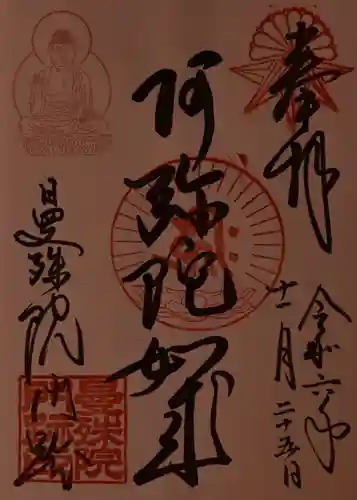 奉拝
令和六年
十一月二十五日
阿弥陀如来
曼殊院門跡
曼殊院